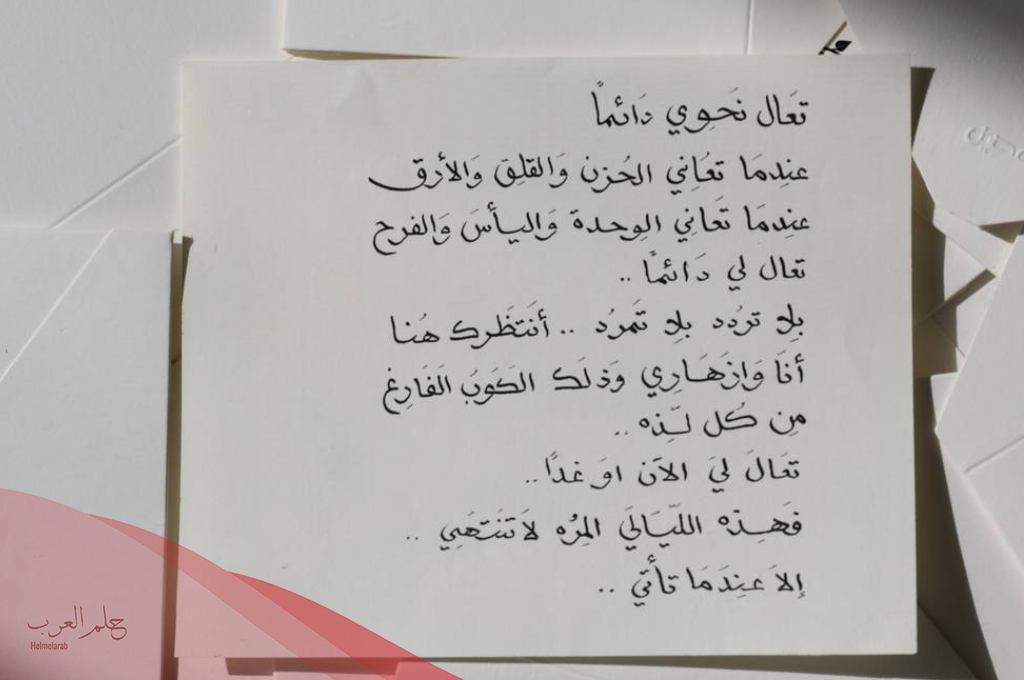 تَعَال نَحَوِي دَائماً
عنِدمَا تعُانِي الحُزن وَالقلِق وَالأرق
عنِدمَا تعَانِي الوِحدة وَاليأسَ وَالفرح
تعال لي دَائماً ..
بلِا تردُد بلِا تَمرُد .. أنَتظَرك هُنا
أنَا وَازهَارِي وَذلَك الكَوبُ الفَارِغ
مِن كُل لـّذِه ..
تعَالَ لي الآن اوَ غدًا ..
فهَـذِه الليَّالَي المِرُه لاَتنَتهَي ..
إلاَ عنِدَمَا تأتي ..
حلم العرب
Helmelarab